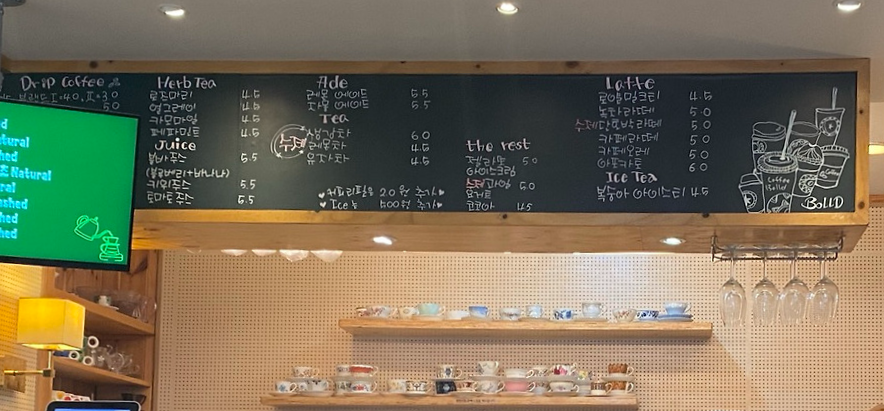 Drip Coffee
브랜드 I=4.0, II=3.0
5.0
Herb Tea
로즈마리 4.5
얼그레이 4.5
카모마일 4.5
페파민트 4.5
Juice
불바주스 5.5
(블루베리+바나나)
키위주스 5.5
토마토주스 5.5
Ade
레몬 에이드 5.5
자몽 에이드 5.5
Tea
수제
생강차 6.0
레몬차 4.5
유자차 4.5
Ice는 500원 추가
the rest
5.0
아이스크림
요거트
코코아 4.5
Latte
로얄밀크티 4.5
녹차라떼 5.0
수제단호박라떼 5.0
카페라떼 5.0
카페오레 5.0
아포카토 6.0
Ice Tea
복숭아 아이스티 4.5
Coffee
Bolld
BollD
Natural